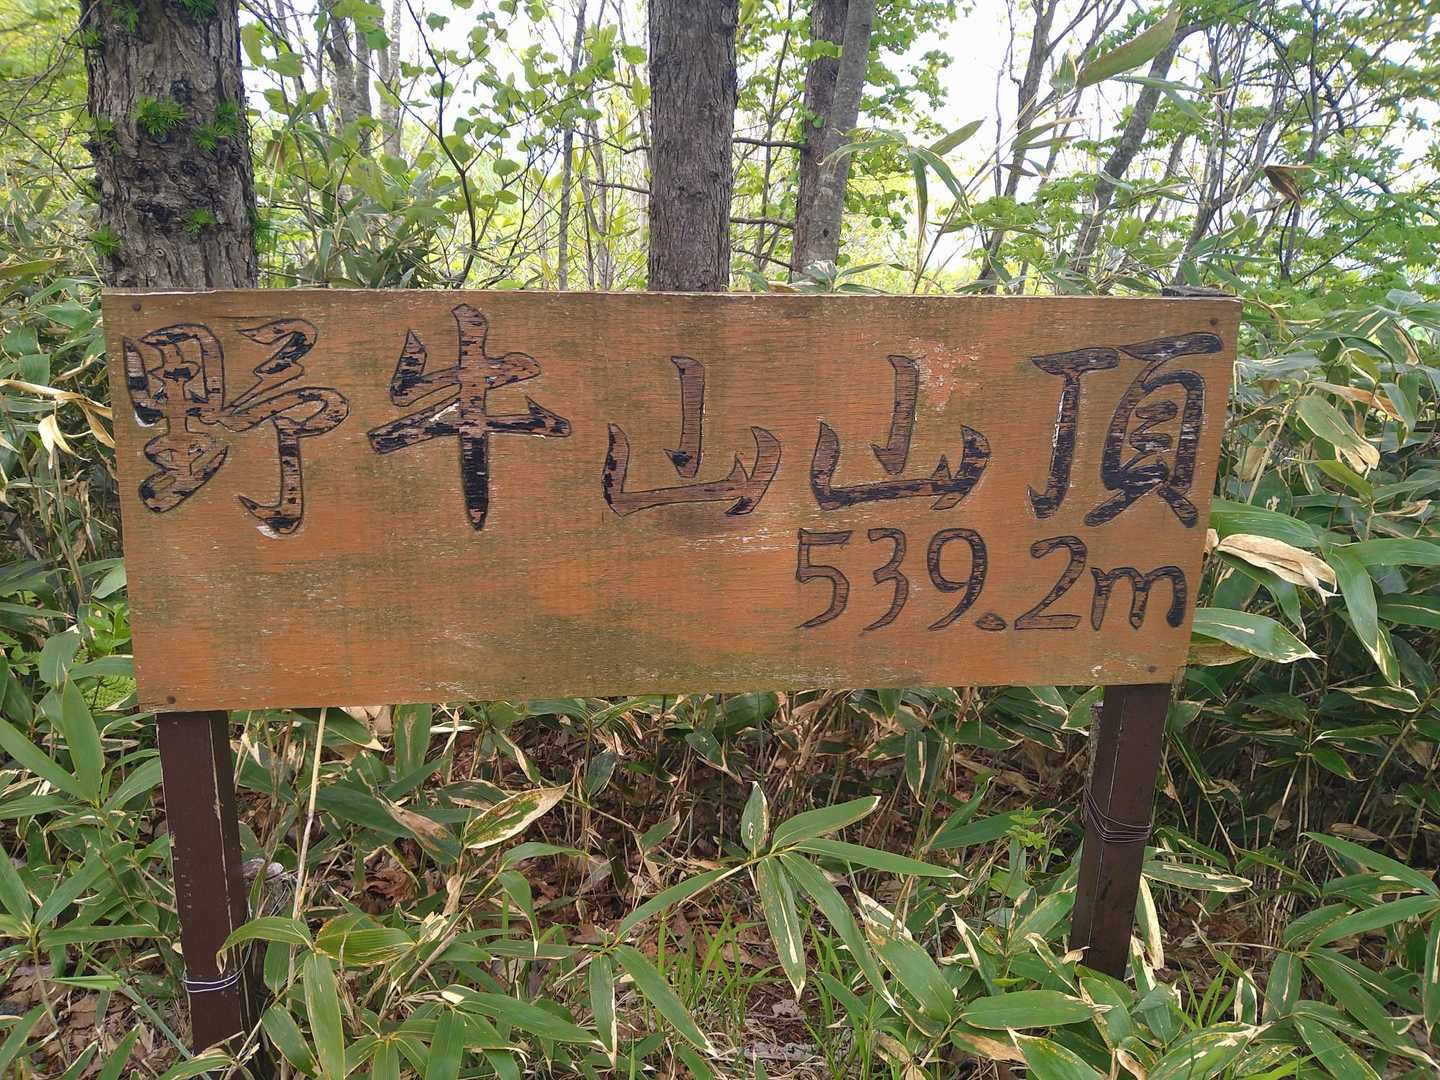 野牛山山頂
539.2m